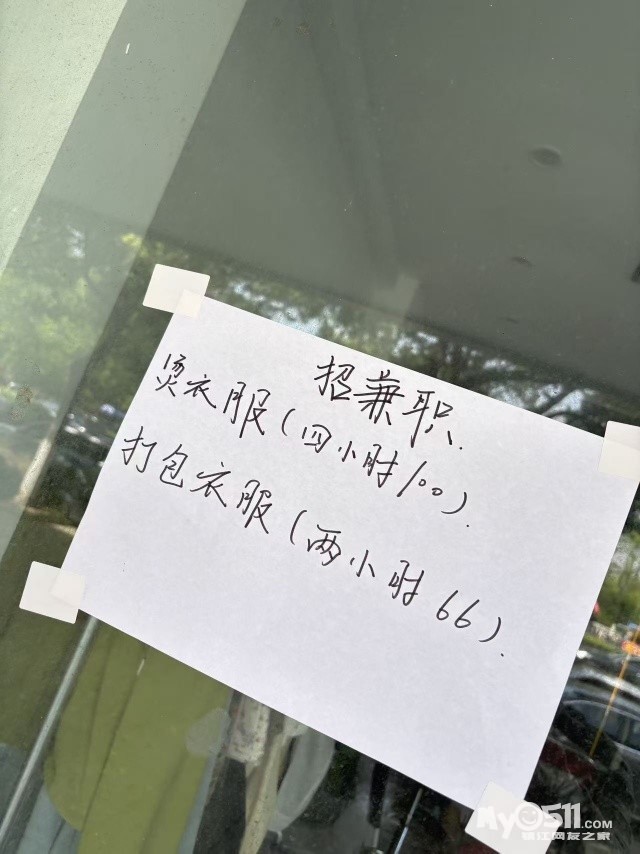 招兼职.
烫衣服(四小时100).
打包衣服(两小时66).
My0511.com
镇江网友之家